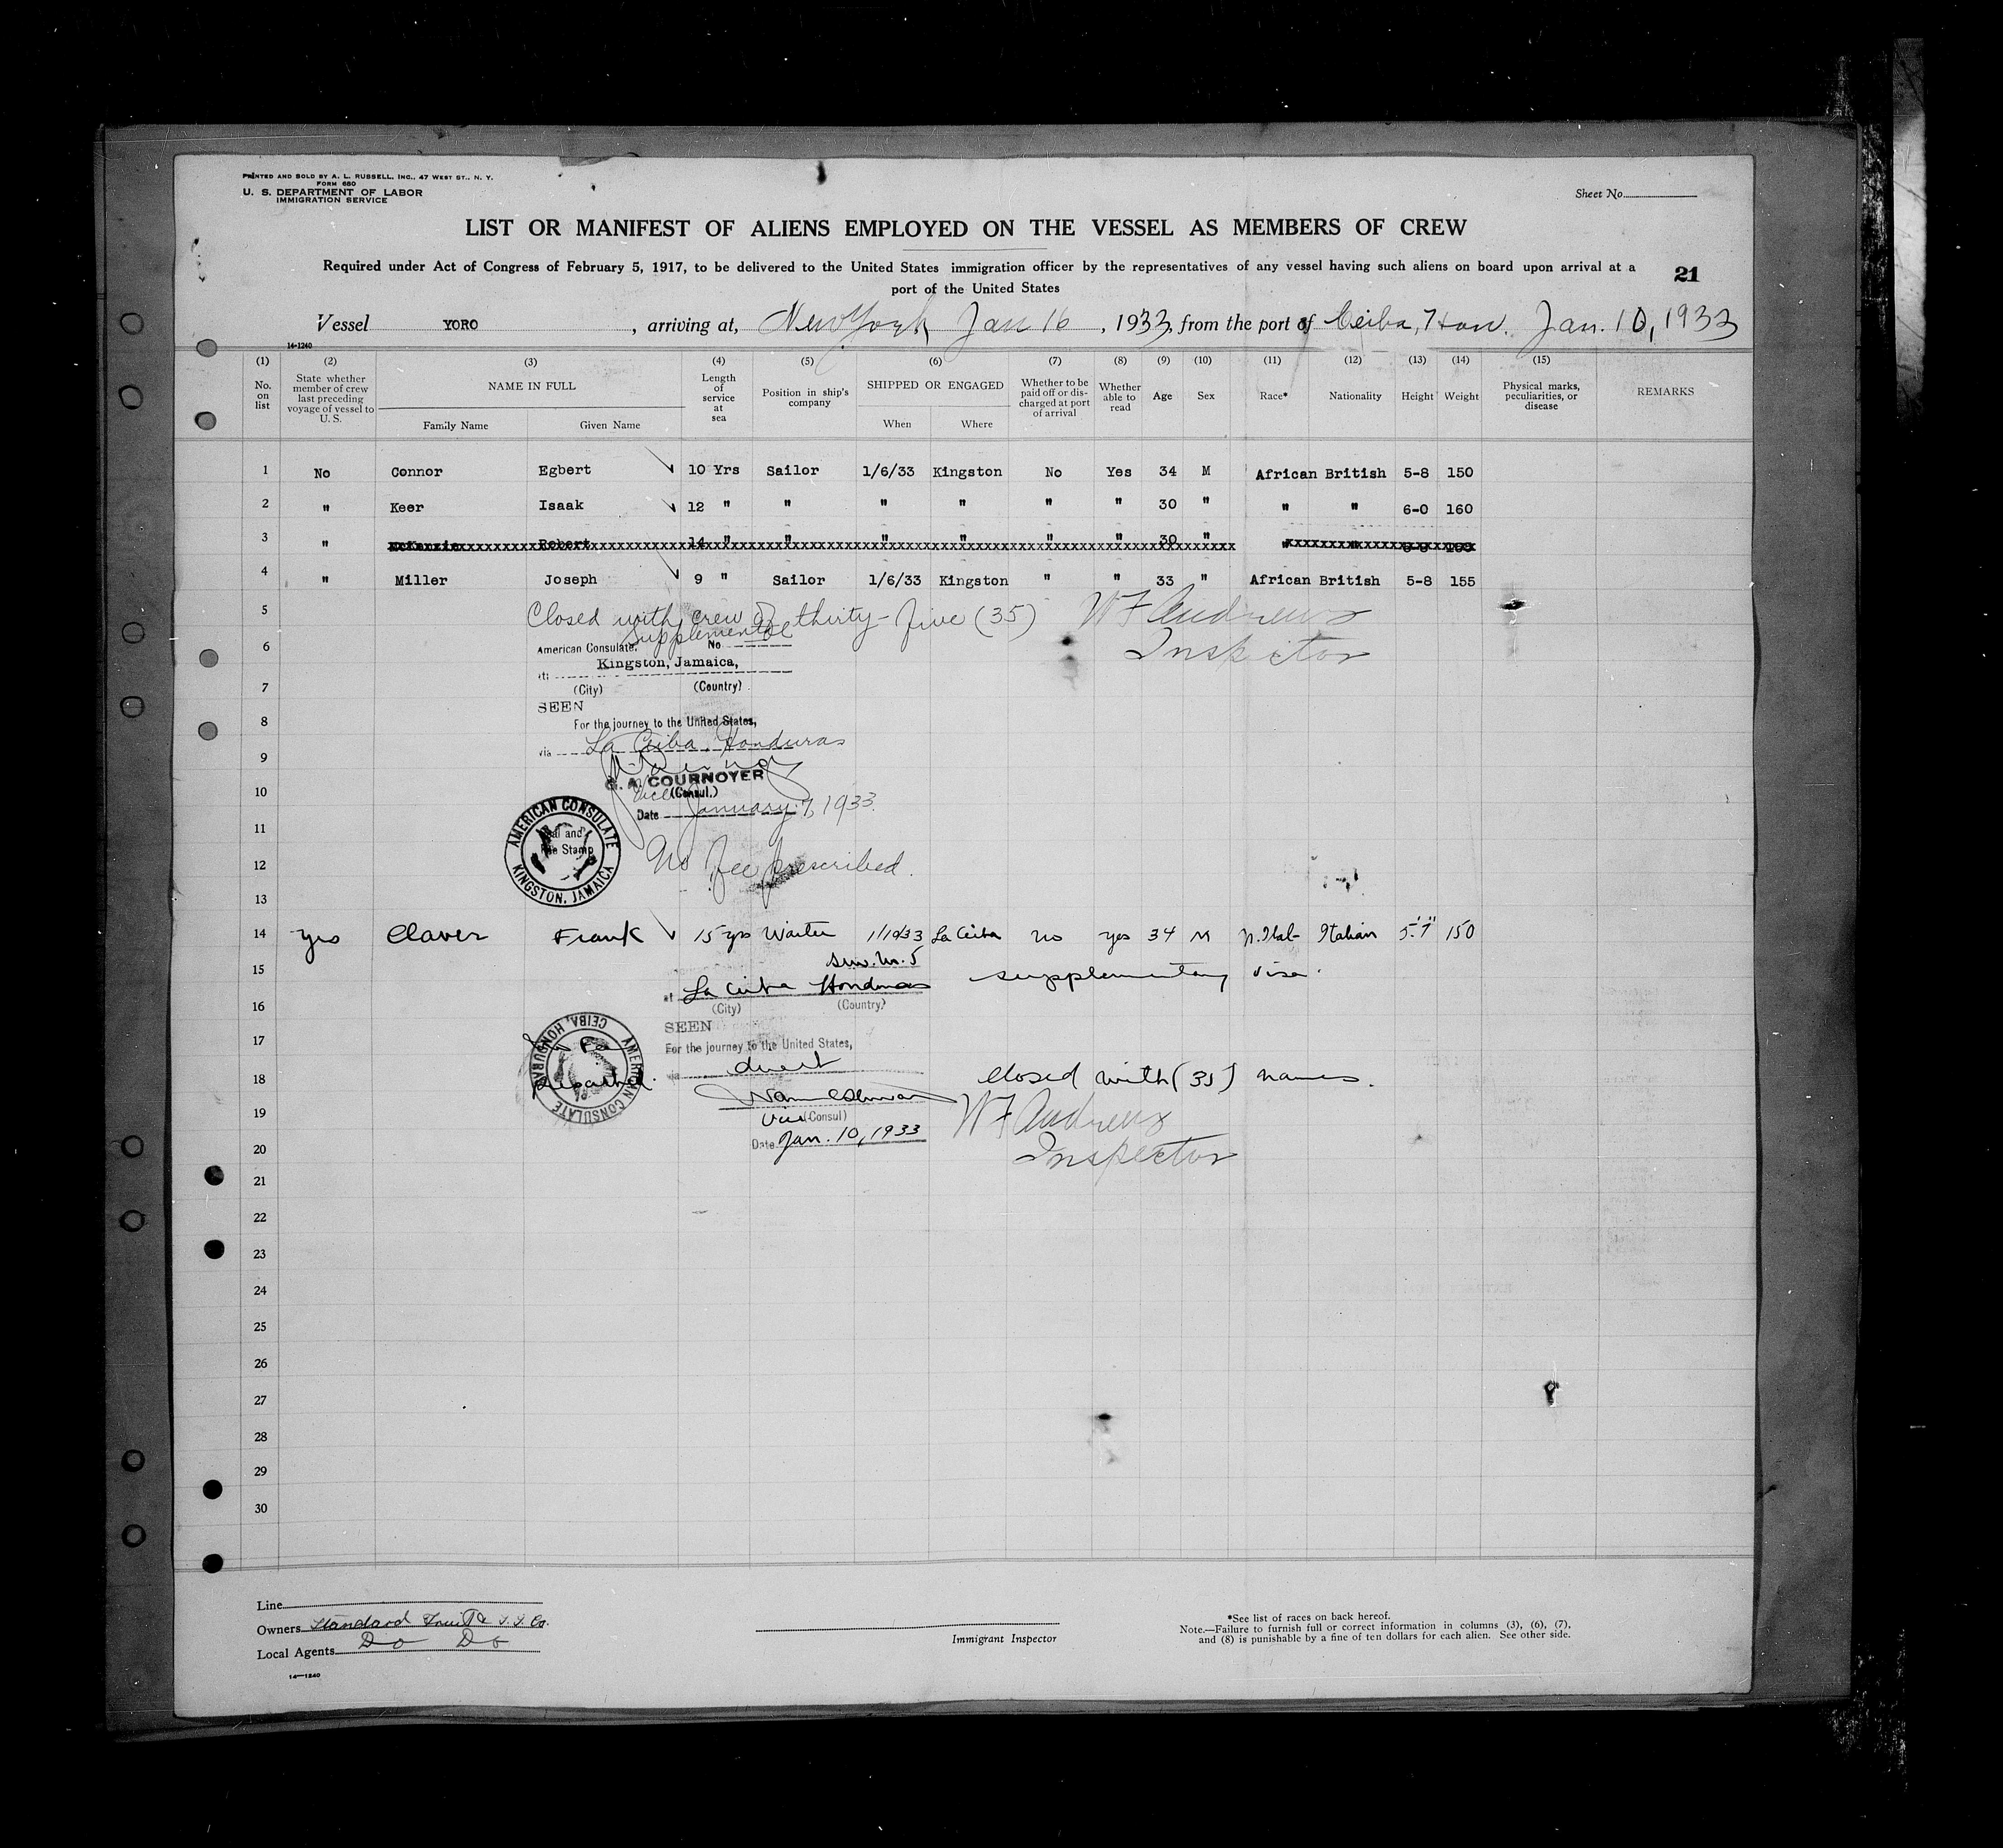 PRINTED AND SOLD BY A. L. RUSSELL, INC., 47 WEST ST., N. Y.
FORM 680
U. S. DEPARTMENT OF LABOR
IMMIGRATION SERVICE
Sheet No.
LIST OR MANIFEST OF ALIENS EMPLOYED ON THE VESSEL AS MEMBERS OF CREW
Required under Act of Congress of February 5, 1917, to be delivered to the United States immigration officer by the representatives of any vessel having such aliens on board upon arrival at a
port of the United States
21
Vessel YORO, arriving at, New York Jan 16, 1933, from the port of Ceiba, Hon. Jan. 10, 1933
14-1240
(1) (2) (3) (4) (5) (6) (7) (8) (9) (10) (11) (12) (13) (14) (15)
No. on list State whether member of crew last preceding voyage of vessel to U. S. NAME IN FULL Length of service at sea Position in ship's company SHIPPED OR ENGAGED Whether to be paid off or discharged at port of arrival Whether able to read Age Sex Race* Nationality Height Weight Physical marks, peculiarities, or disease REMARKS
Family Name Given Name When Where
1 No Connor Egbert 10 Yrs Sailor 1/6/33 Kingston No Yes 34 M African British 5-8 150
2 " Keer Isaak 12 " " " " " " 30 " " " 6-0 160
3 " McKenzie Robert 14 " " " " " " 30 " " "
4 " Miller Joseph 9 " Sailor 1/6/33 Kingston " " 33 " African British 5-8 155
5 Closed with crew of thirty-five (35) W F Andrews
Supplemental
6 American Consulate. No Inspector
Kingston, Jamaica,
7 (City) (Country)
SEEN
8 For the journey to the United States,
via La Ceiba, Honduras
9
G. A. COURNOYER
10 Vice (Consul.)
Date January 7, 1933.
11 AMERICAN CONSULATE KINGSTON, JAMAICA
Seal and
Fee Stamp
12 No fee prescribed.
13
14 yes Claver Frank 15 yrs Waiter 1/10/33 La Ceiba no yes 34 M N. Ital- Italian 5-7" 150
15 supplementary visa.
at La Ceiba Honduras
16 (City) (Country)
SEEN
17 For the journey to the United States,
AMERICAN CONSULATE CEIBA, HONDURAS
via direct
18 Closed with (35) names.
19 W F Andrews
Vice (Consul)
Date Jan. 10, 1933
20 Inspector
21
22
23
24
25
26
27
28
29
30
Line
Owners Standard Fruit & S. S. Co.
Local Agents Do Do
14-1240
Immigrant Inspector
*See list of races on back hereof.
Note.—Failure to furnish full or correct information in columns (3), (6), (7),
and (8) is punishable by a fine of ten dollars for each alien. See other side.